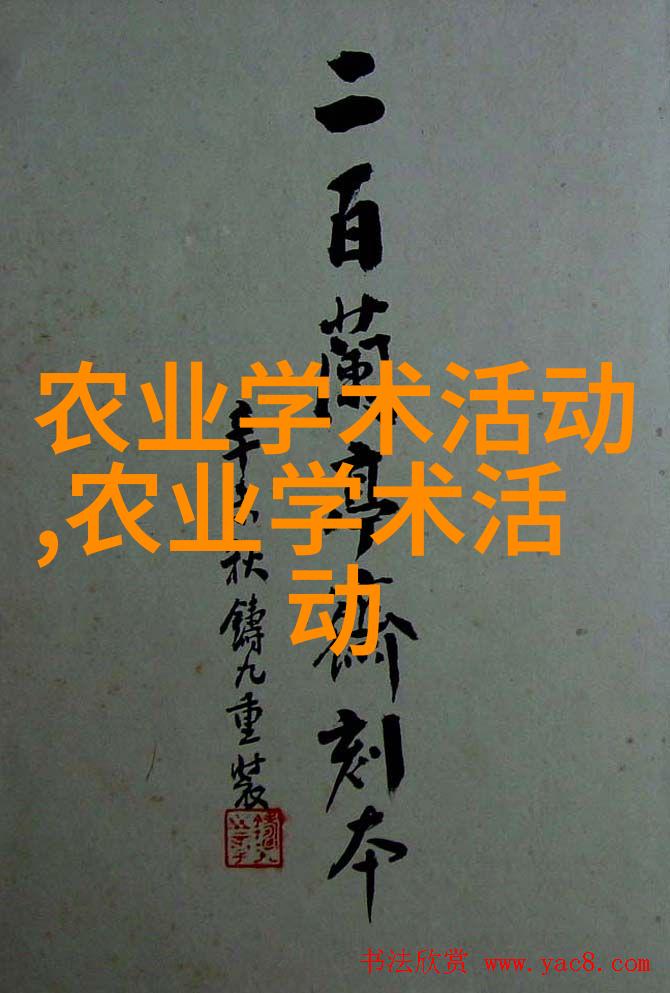 二百蘭亭齋刻本
辛 秋鑄九重裝
农业学术活动
,农业学术活
动
书法欣赏 www.yac8.com